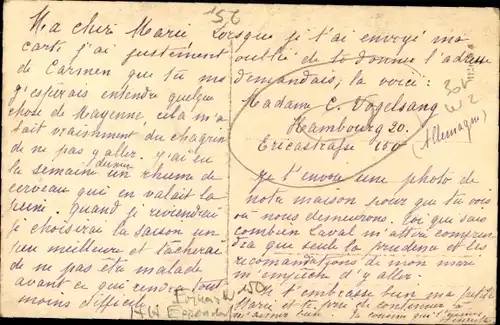 15 €
Ma chère Marie Lorsque je t'ai envoyé ma
carte j'ai justement
oublié de te donner l'adresse
de Carmen que tu me
demandais, la voici :
J'espérais entendre quelque
chose de Mayenne, cela m'a
fait vraiment du chagrin
de ne pas y aller. J'ai eu
la semaine un rhume de
cerveau qui en valait la
peine. Quand je reviendrai
je choisirai la saison un
peu meilleure et tâcherai
de ne pas être malade
avant ce qui rendra tout
moins difficile.
Madam C. Vogelsang
Hambourg 20.
Ericastraße 150
(Allemagne)
Je t'envoie une photo de
notre maison pour que tu vois
où nous demeurons. Toi qui sais
combien Laval m'attire comprendra
que seule la prudence et les
recomandations de mon mari
m'empêch d'y aller.
Je t'embrasse bien ma petite
Marie et te prie de continuer à
m'aimer bien.
HH Eppendorf